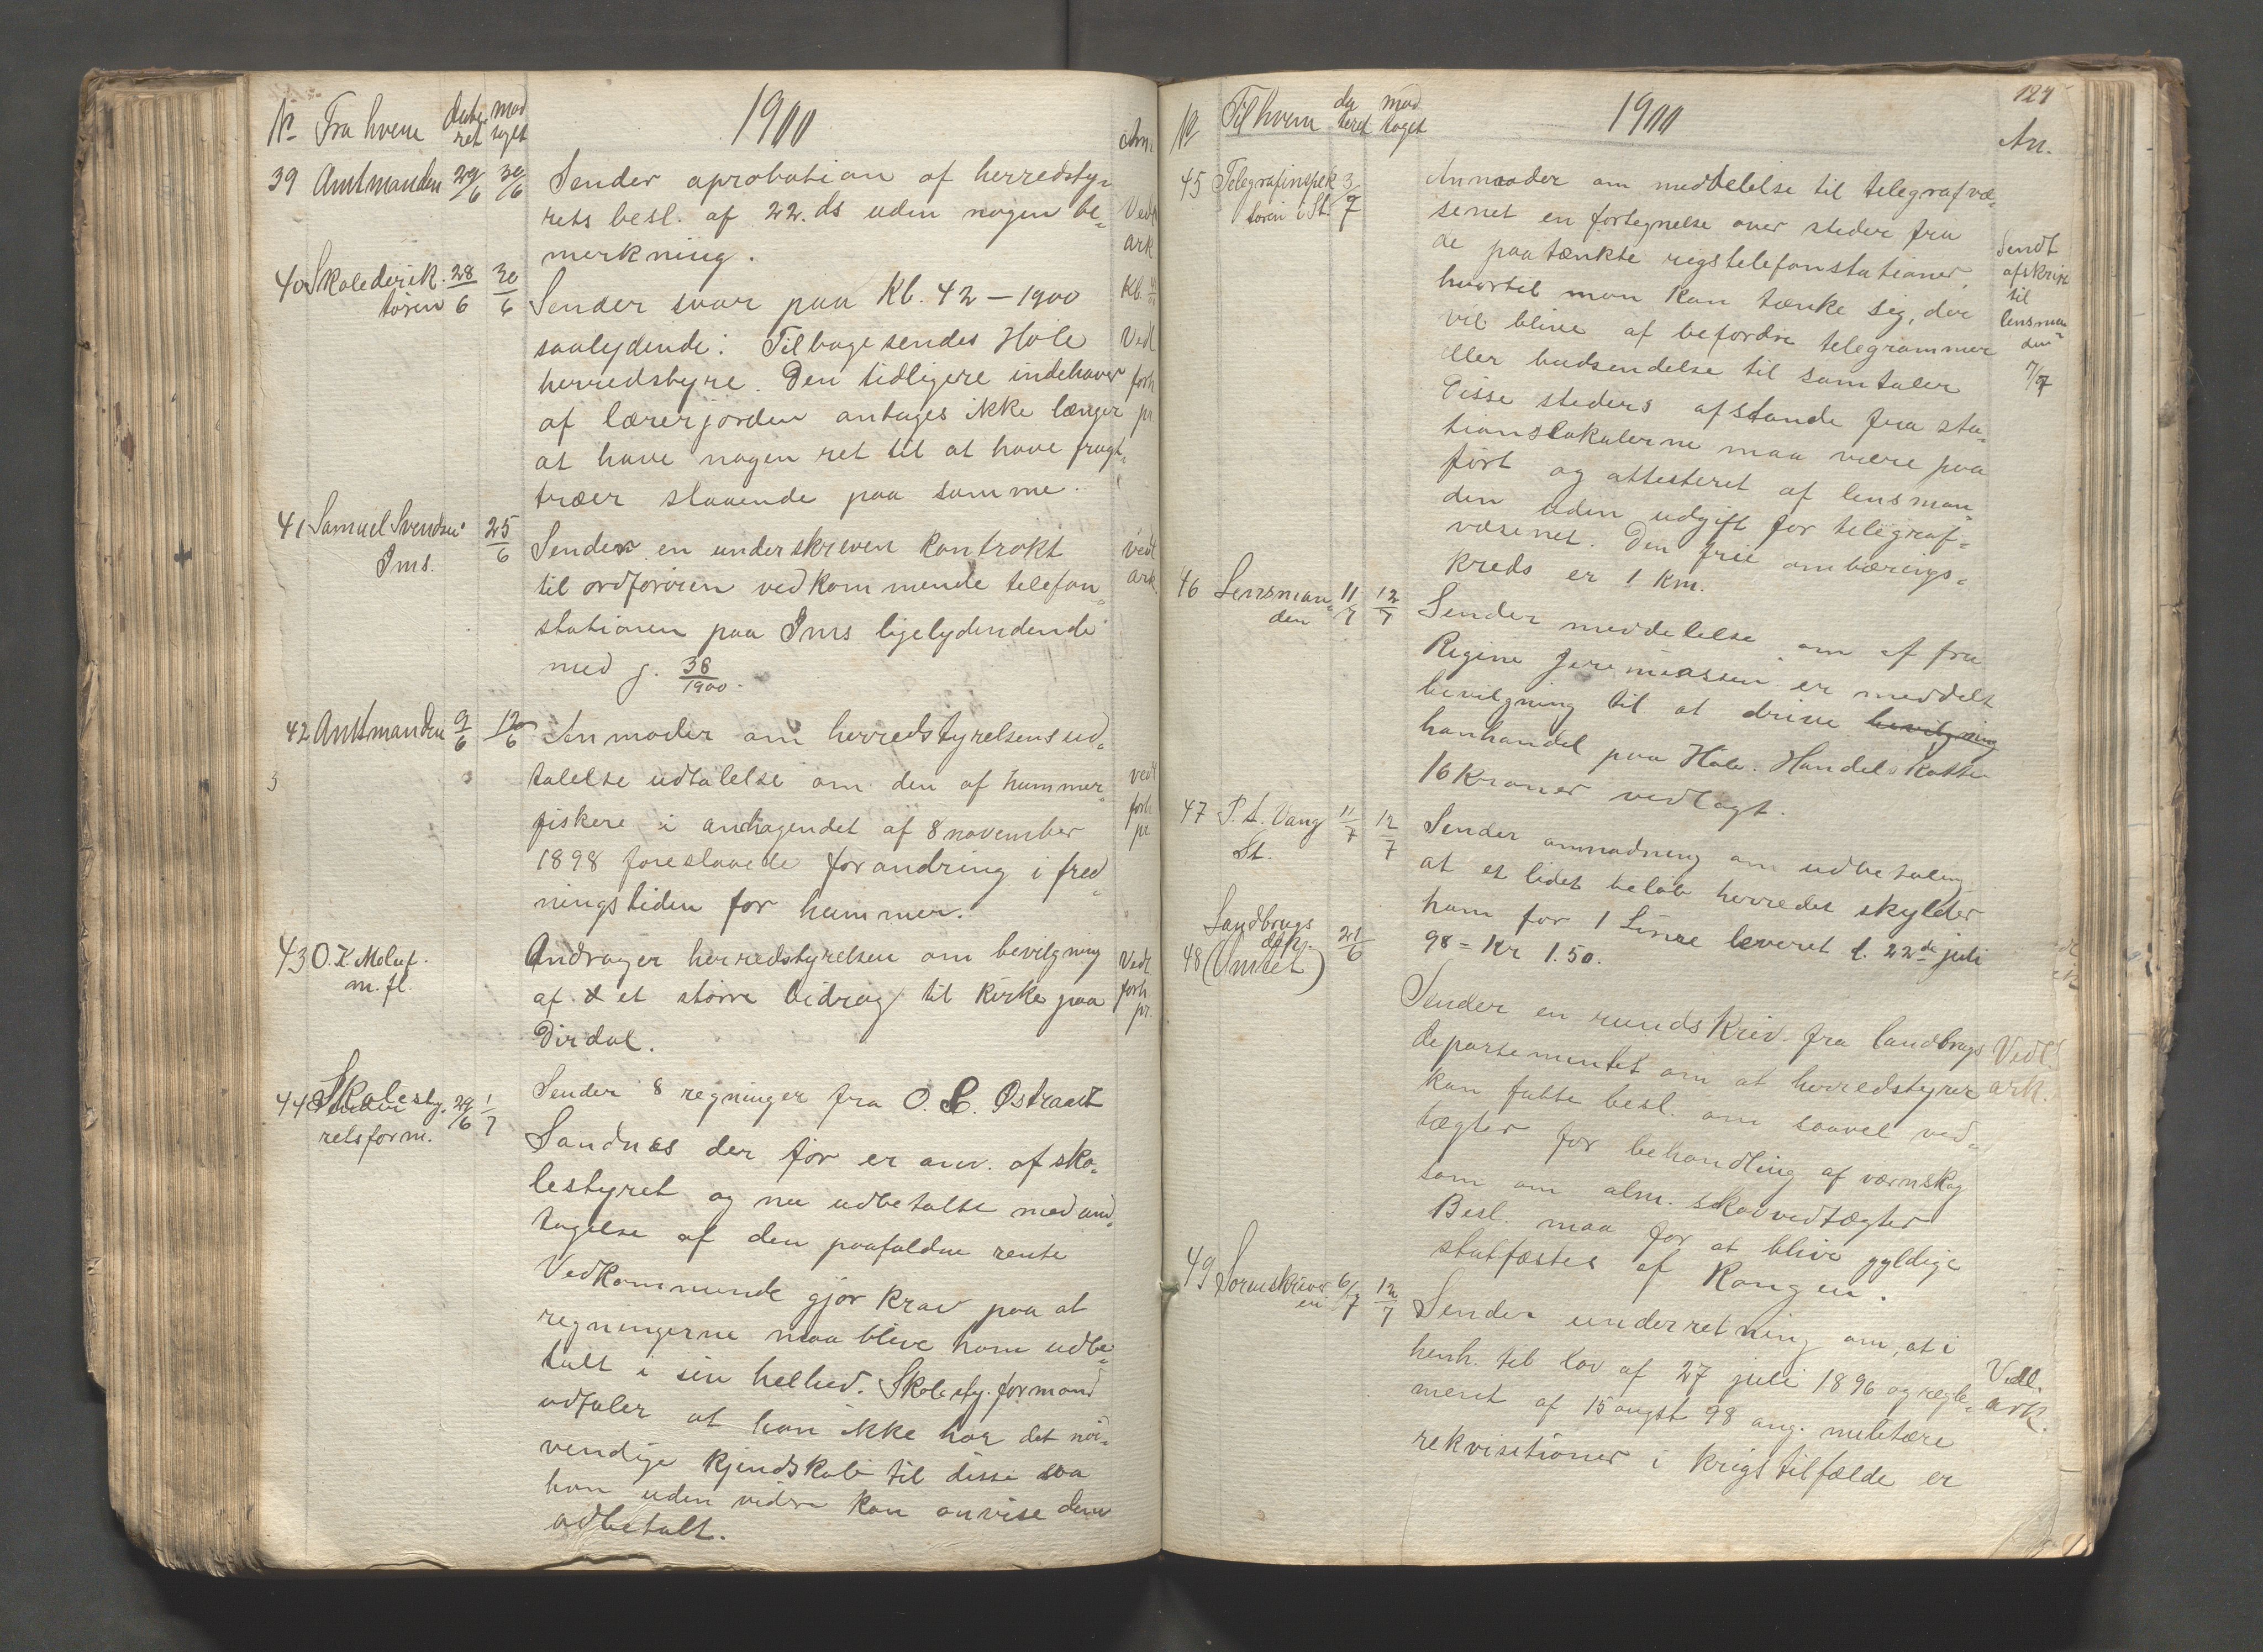 No Fra hvem date- mod
ret taget
1900
Anm.
39 Amtmanden 29/6 30/6 Sender aprobation af herredsty-
rets besl. af 22. ds uden nogen be- Vedl
merkning. ark
40 Skoledirek- 28/6 30/6 Sender svar paa Kb. 42 – 1900 Kb.
tøren
saalydende: Tilbagesendes Høle Vedl
herredstyre. Den tidligere indehaver forh
af lærerjorden antages ikke længer pr
at have nogen ret til at have frugt-
træer staaende paa samme.
41 Samuel Svendsen 25/6 Sender en underskreven kontrakt vedl
Ims. til ordføreren vedkommende telefon- ark.
stationen paa Ims ligelydendende
med j. 38/1900.
42 Amtmanden 9/6 12/6 Anmoder om herredstyrelsens ud-
3 talelse udtalelse om den af hummer- vedl
fiskere i andragendet af 8 november forh
pr
1898 foreslaaede forandring i fred-
ningstiden for hummer.
43 O. K. Meluf. Andrager herredstyrelsen om bevilgning Vedl.
m. fl. af et større bidrag til kirke paa forh
pr.
Dirdal.
44 Skolesty- 29/6 1/7 Sender 8 regninger fra O. L. Østraadt
relsform. Sandnæs der før er anv. af sko-
lestyret og nu udbetalte med und-
tagelse af den paafaldne rente
Vedkommende gjør krav paa at
regningerne maa blive ham udbe-
talt i sin helhed. Skolesty. formand
udtaler at han ikke har det nød-
vendige kjendskab til disse saa
han uden videre kan anvise dem
udbetalt.
124
No Til hvem da mod
teret taget
1900
An.
45 Telegrafinspek 3/7 Anmoder om meddelelse til telegrafvæ-
tøren i St. senet en fortegnelse over steder fra
de paatænkte rigstelefonstationer, Sendt
afskrift
hvortil man kan tænke sig, der til
vil blive af befordre telegrammer lensman
den
eller budsendelse til samtaler 7/7
Disse steders afstande fra sta-
tionslokalerne maa være paa
ført og attesteret af lensman-
den uden udgift for telegraf-
væsenet. Den frie ombærings-
kreds er 1 km.
46 Lensman- 11/7 12/7 Sender meddelelse om at fru
den Regine Jeremiassen er meddelt
bevilgning til at drive bevilgning
hanhandel paa Høle. Handelskatten
16 Kroner vedlagt.
47 P. A. Vang 11/7 12/7 Sender anmodning om udbetaling
St. at et lidet beløb herredet skylder
ham for 1 Linse leveret d. 22de juli
98 = Kr 1.50.
Landbrugs
dep.
48 (Omset) 21/6 Sender en rundskriv. fra landbrugs Vedl.
departementet om at herredstyrer ark.
kan fatte besl. om saavel ved-
tægter for behandling af værnskog
som om alm. skovvedtægter
Besl. maa for at blive gyldige
statfæstes af Kongen.
49 Sorenskriver 6/7 12/7 Sender underretning om, at i
en henh. til lov af 27 juli 1896 og regle- Vedl.
ment af 15 augst 98 ang. militære ark.
rekvisitioner i krigstilfælde er